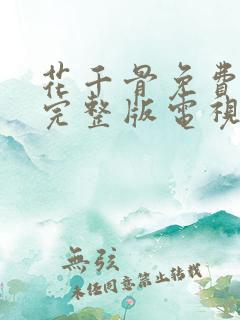 花千骨免費
完整版電視
無弦
未任同意禁止转载